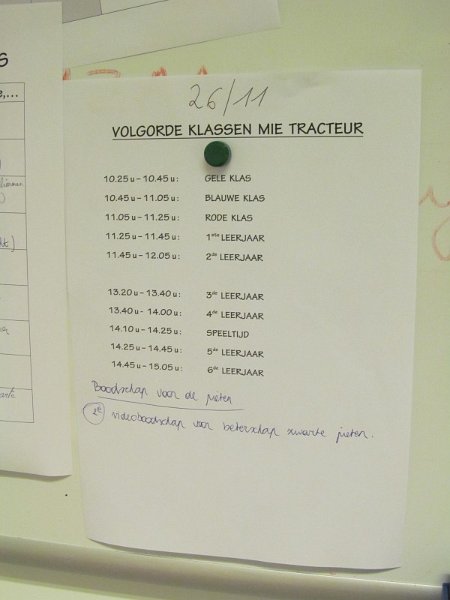 26/11
VOLGORDE KLASSEN MIE TRACTEUR
10.25 u – 10.45 u: GELE KLAS
10.45 u – 11.05 u: BLAUWE KLAS
11.05 u – 11.25 u: RODE KLAS
11.25 u – 11.45 u: 1ste LEERJAAR
11.45 u – 12.05 u: 2de LEERJAAR
13.20 u – 13.40 u: 3de LEERJAAR
13.40 u – 14.00 u: 4de LEERJAAR
14.10 u – 14.25 u: SPEELTIJD
14.25 u – 14.45 u: 5de LEERJAAR
14.45 u – 15.05 u: 6de LEERJAAR
Boodschap voor de pieten
videoboodschap voor beterschap zwarte pieten.